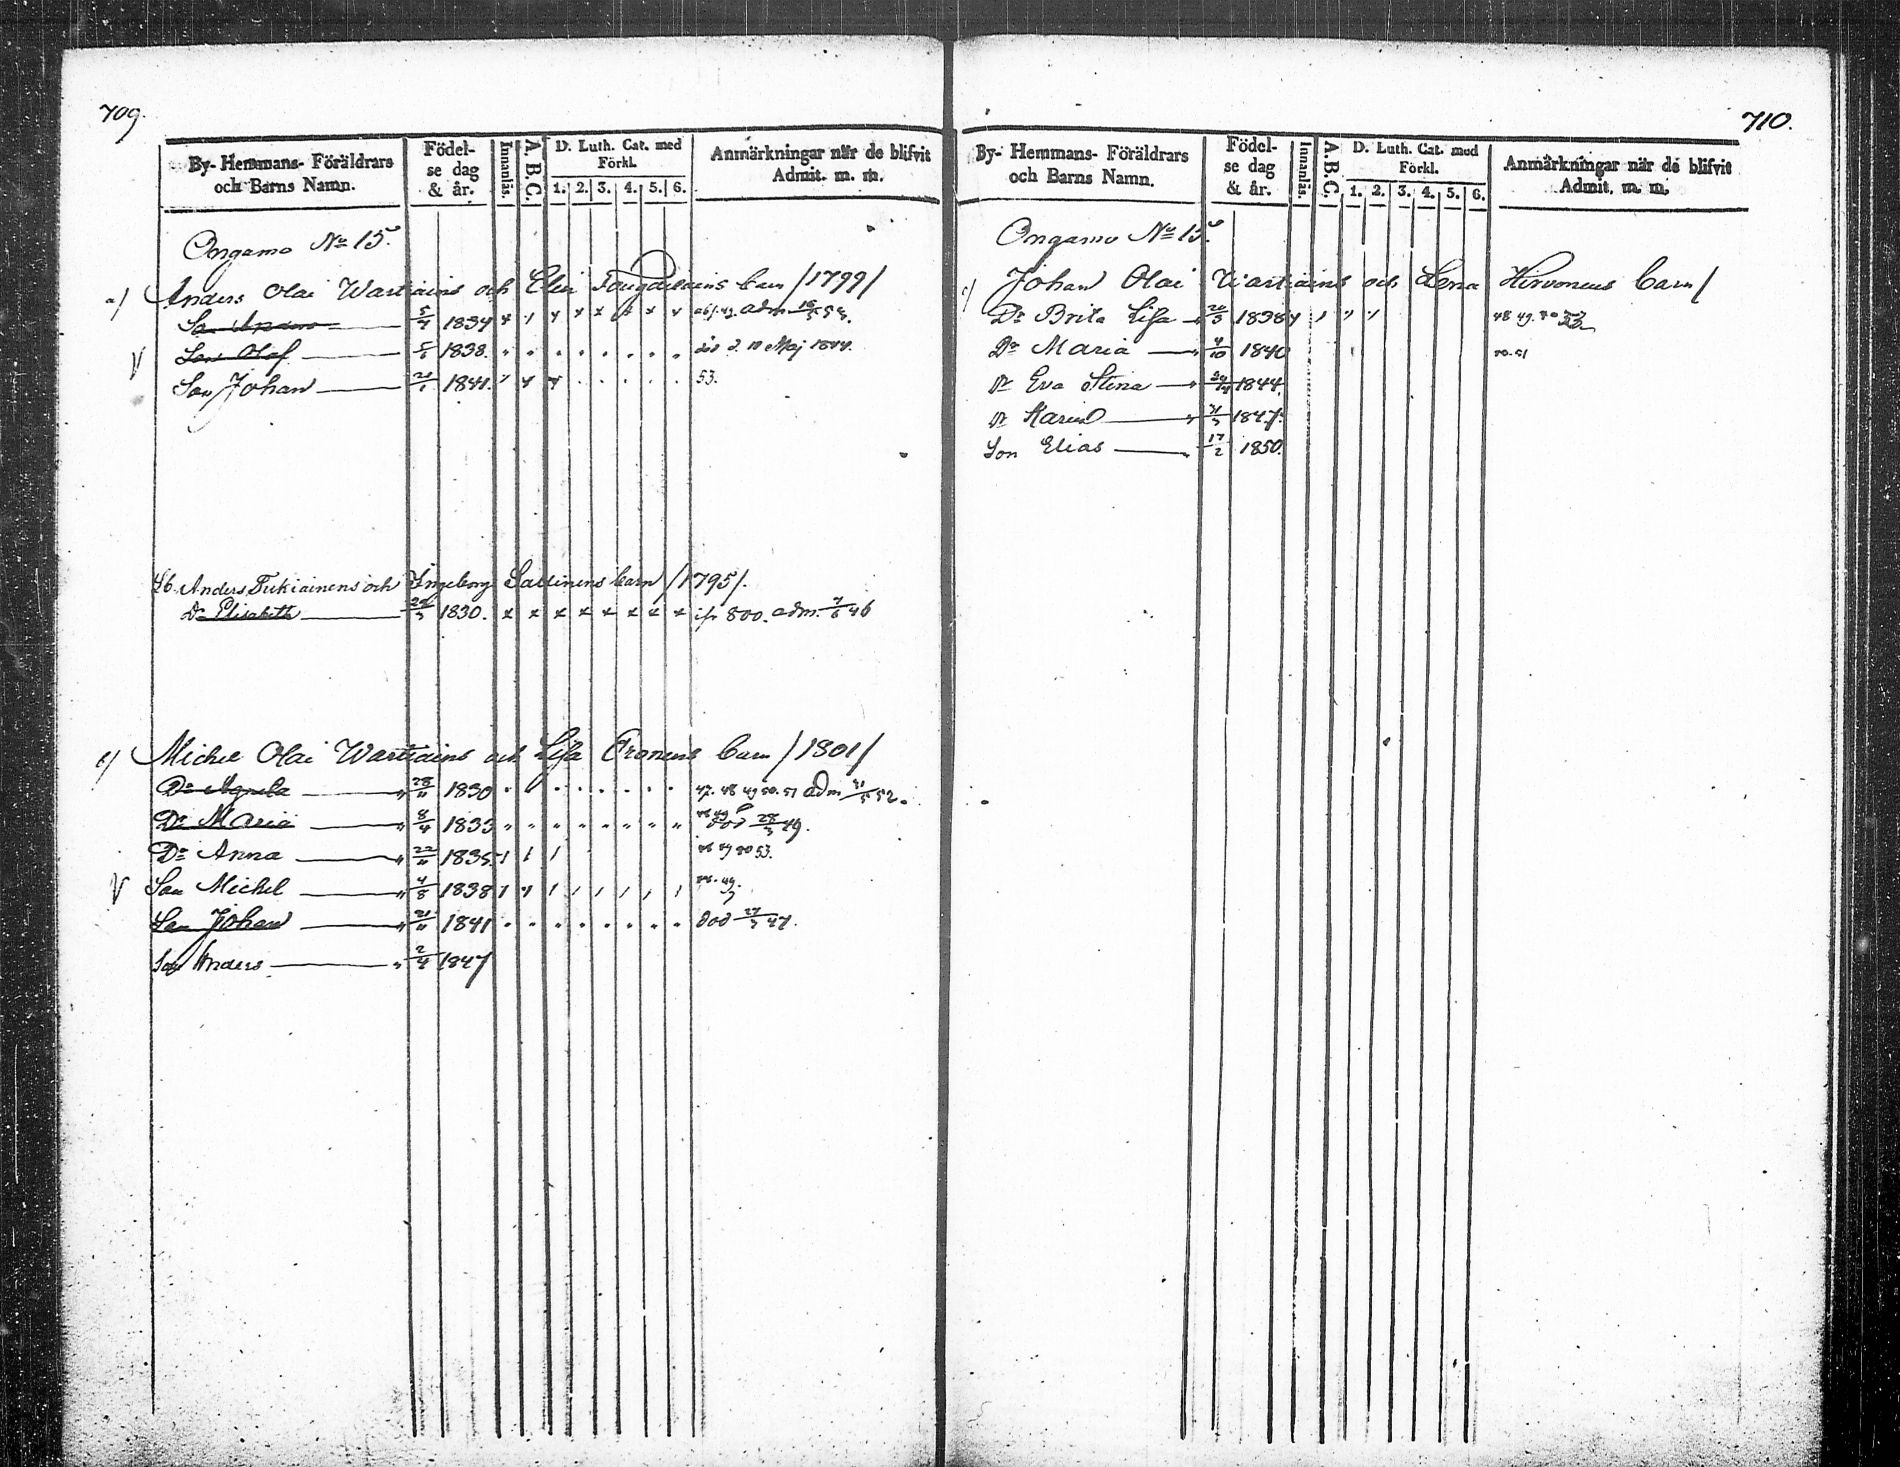 709.
By- Hemmans- Föräldrars och Barns Namn.
Födelse dag & år.
Innanläs.
A. B. C.
D. Luth. Cat. med Förkl.
1. 2. 3. 4. 5. 6.
Anmärkningar när de blifvit Admit. m. m.
Ongamo No 15.
a) Anders Olai Wartiains och Elin barn /1799/
Son Anders 5/4 1834 adm 53.
Son Olof 1838. död d. 10 Maj 1844.
Son Johan 21/1 1841. 53.
Anders Tukiainens och Ingeborg Sallinens barn /1795/.
Dr Elisabeth 1830. 800. adm. 7/6 46
Michel Olai Wartiains och Lisa barn /1801/
Dr Agneta 28/11 1830 47. 48 49 50. 51 adm 52.
Dr Maria 8/4 1833 död 28/3 49.
Dr Anna 22/11 1835 53.
Son Michel 4/8 1838 49.
Son Johan 21/11 1841 död 27/3 47.
Son Anders 2/4 1847
710.
By- Hemmans- Föräldrars och Barns Namn.
Födelse dag & år.
Innanläs.
A. B. C.
D. Luth. Cat. med Förkl.
1. 2. 3. 4. 5. 6.
Anmärkningar när de blifvit Admit. m. m.
Ongamo No 15.
Johan Olai Wartiains och Lena Hirvonens barn/
Dr Brita Lisa 1838 48 49. 50
Dr Maria 4/10 1840 50. 51
Dr Eva Stina 1844.
Dr Karin 1847.
Son Elias 17/2 1850.